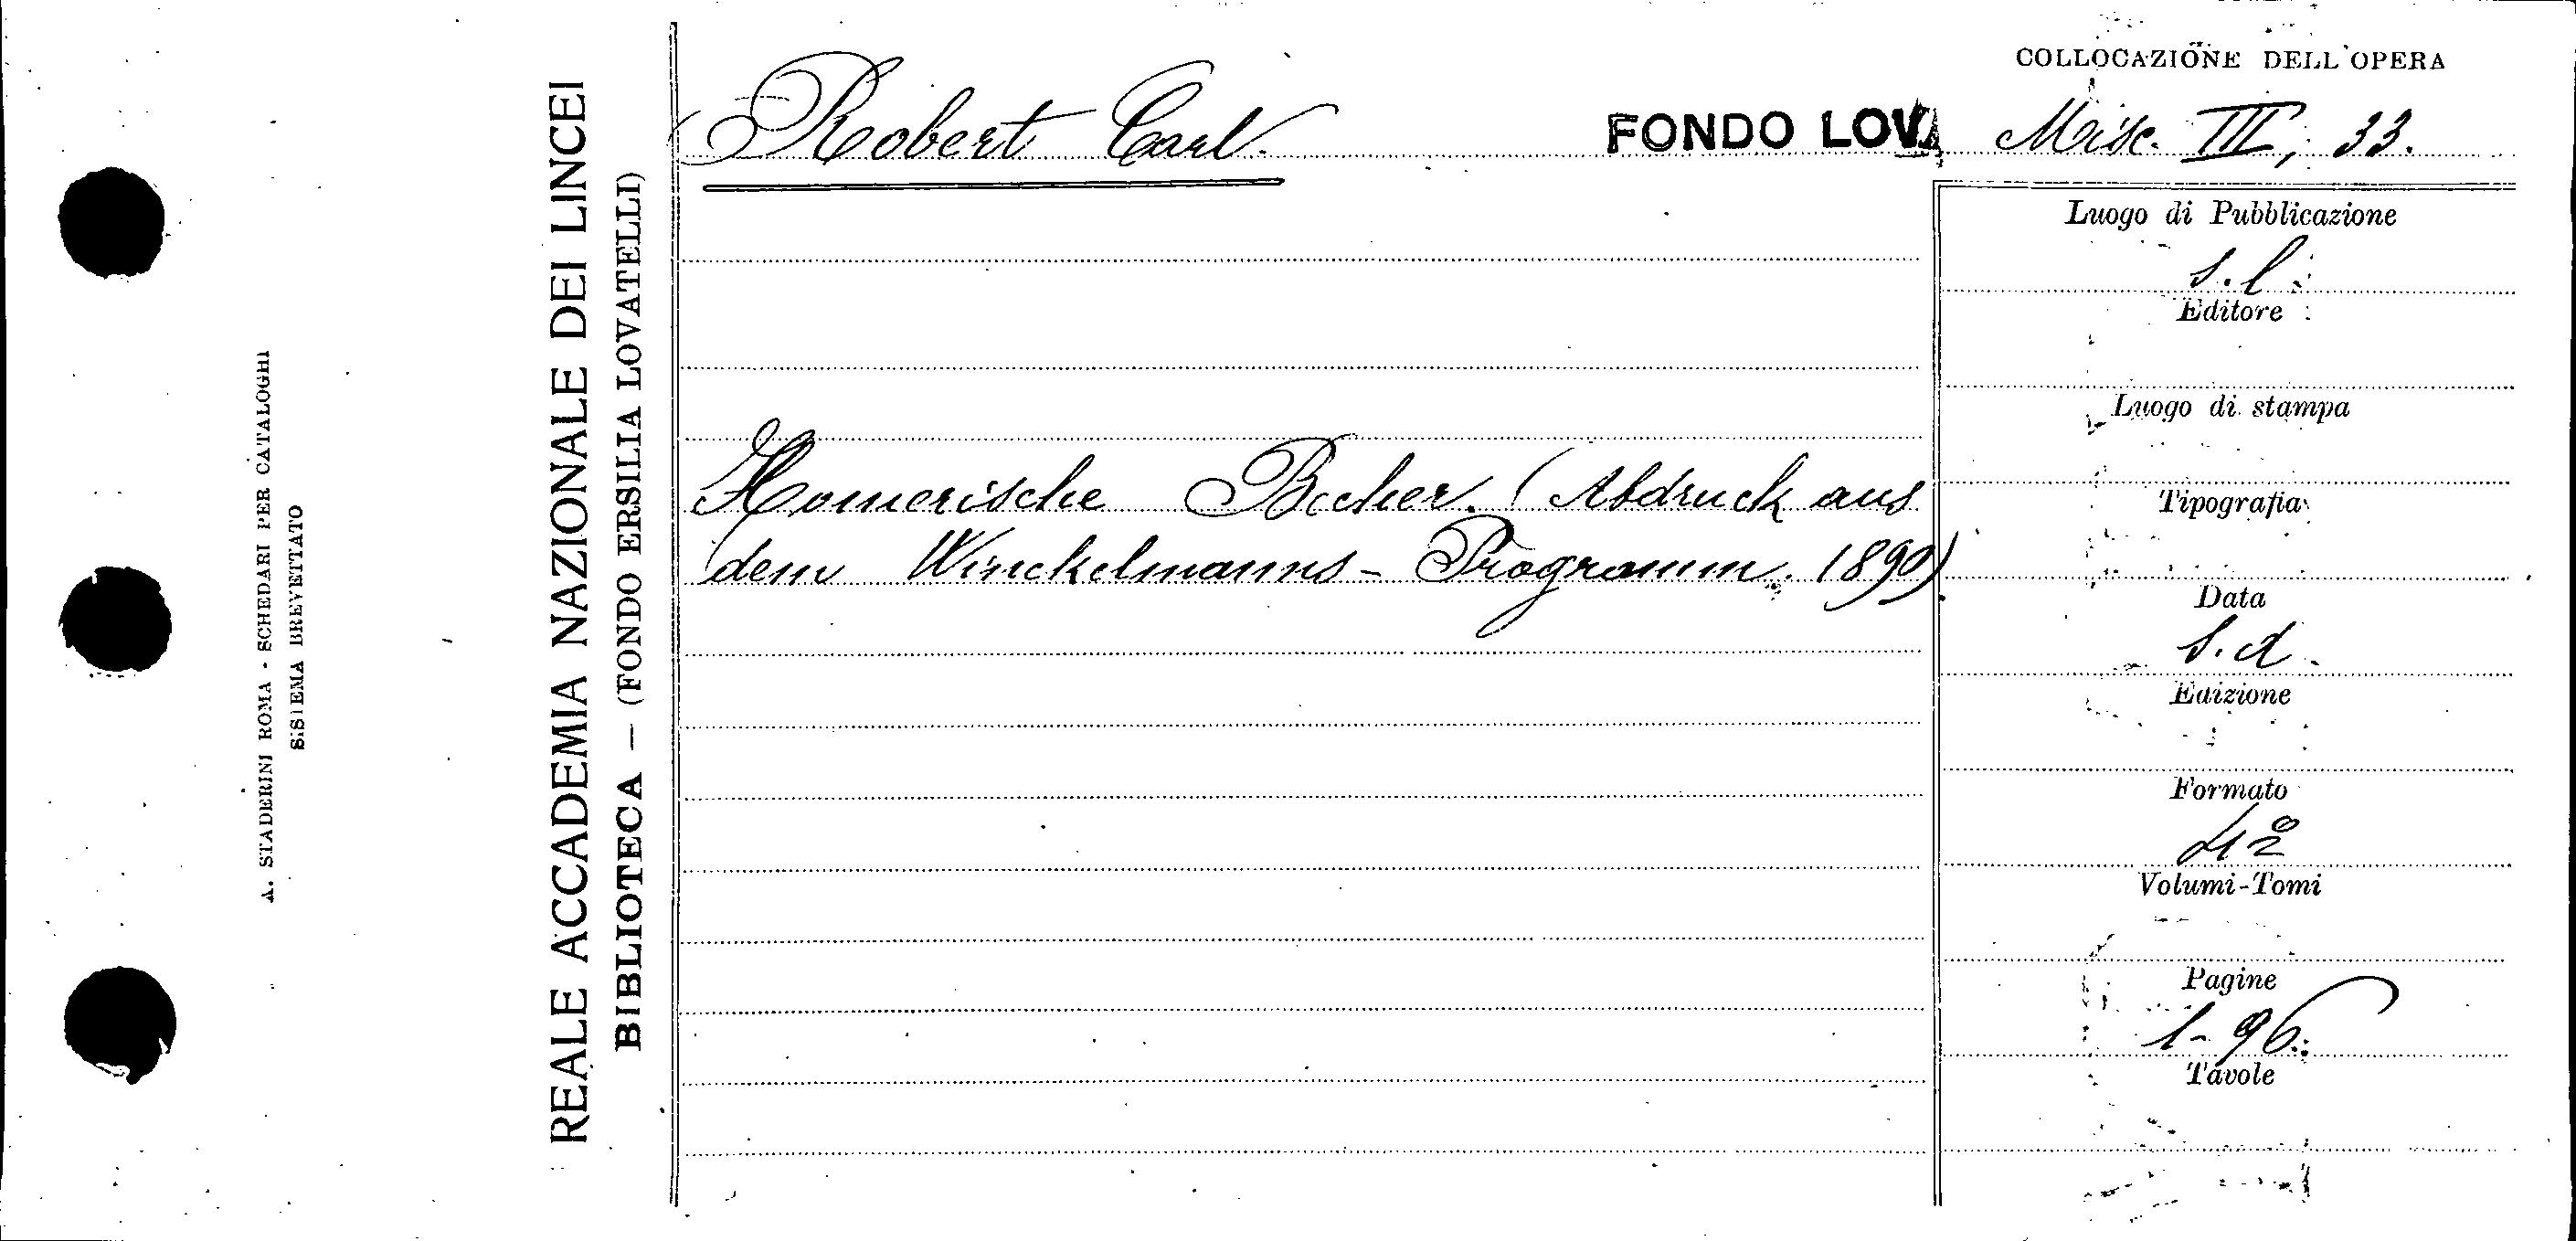 A. STADERINI ROMA - SCHEDARI PER CATALOGHI
SISTEMA BREVETTATO
REALE ACCADEMIA NAZIONALE DEI LINCEI
BIBLIOTECA — (FONDO ERSILIA LOVATELLI)
COLLOCAZIONE DELL'OPERA
Robert Carl. FONDO LOVA Misc. III, 33.
Luogo di Pubblicazione
s.l.
Editore
Luogo di stampa
Homerische Becher. (Abdruck aus
Tipografia
dem Winckelmanns-Programm. 1890)
Data
s.d.
Edizione
Formato
4º
Volumi-Tomi
Pagine
1-96.
Tavole